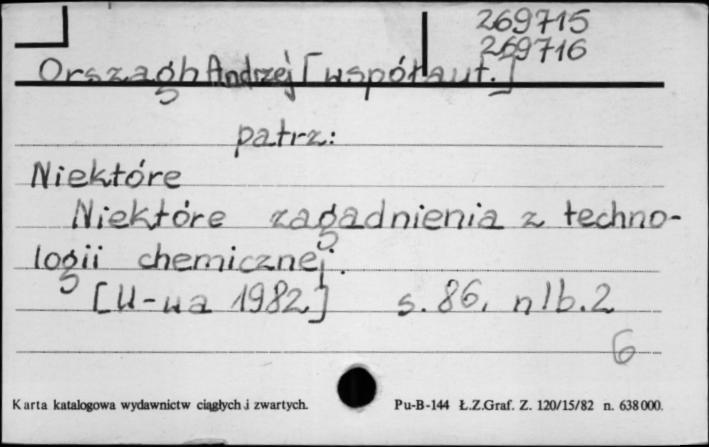 269715
269716
Orszagh Andrzej [współaut.]
patrz:
Niektóre
Niektóre zagadnienia z techno-
logii chemicznej.
[W-wa 1982] s. 86, nlb. 2
6
Karta katalogowa wydawnictw ciągłych i zwartych. Pu-B-144 Ł.Z.Graf. Z. 120/15/82 n. 638000.